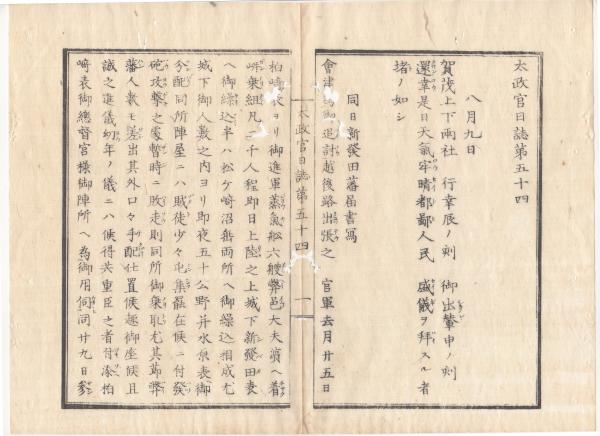 太政官日誌第五十四
八月九日
賀茂上下兩社 行幸辰ノ刻 御出輦申ノ刻
還幸是日天氣牢晴都鄙人民 盛儀ヲ拜スル者
堵ノ如シ
同日新發田藩届書寫
會津爲御追討越後路出張之 官軍去月廿五日
太政官日誌第五十四 一
柏崎表ヨリ御進軍蒸氣舩六艘弊邑大夫濱ヘ着
岬乘組凡二千人程即日上陸之上城下新發田表
ヘ御繰込半ハ松ケ崎沼垂兩所ヘ御繰込相成尤
城下御人數之内ヨリ即夜五十公野并水原表御
分配同所陣屋ニハ賊徒少々屯集罷在候ニ付發
砲攻撃之處暫時ニ敗走則同所御乘取尤其節弊
藩人數モ差出其外口々手配仕置候趣御座候且
誠之進儀幼年ノ儀ニハ候得共重臣之者付添柏
崎表御總督宮樣御陣所ヘ為御用伺同廿九日參